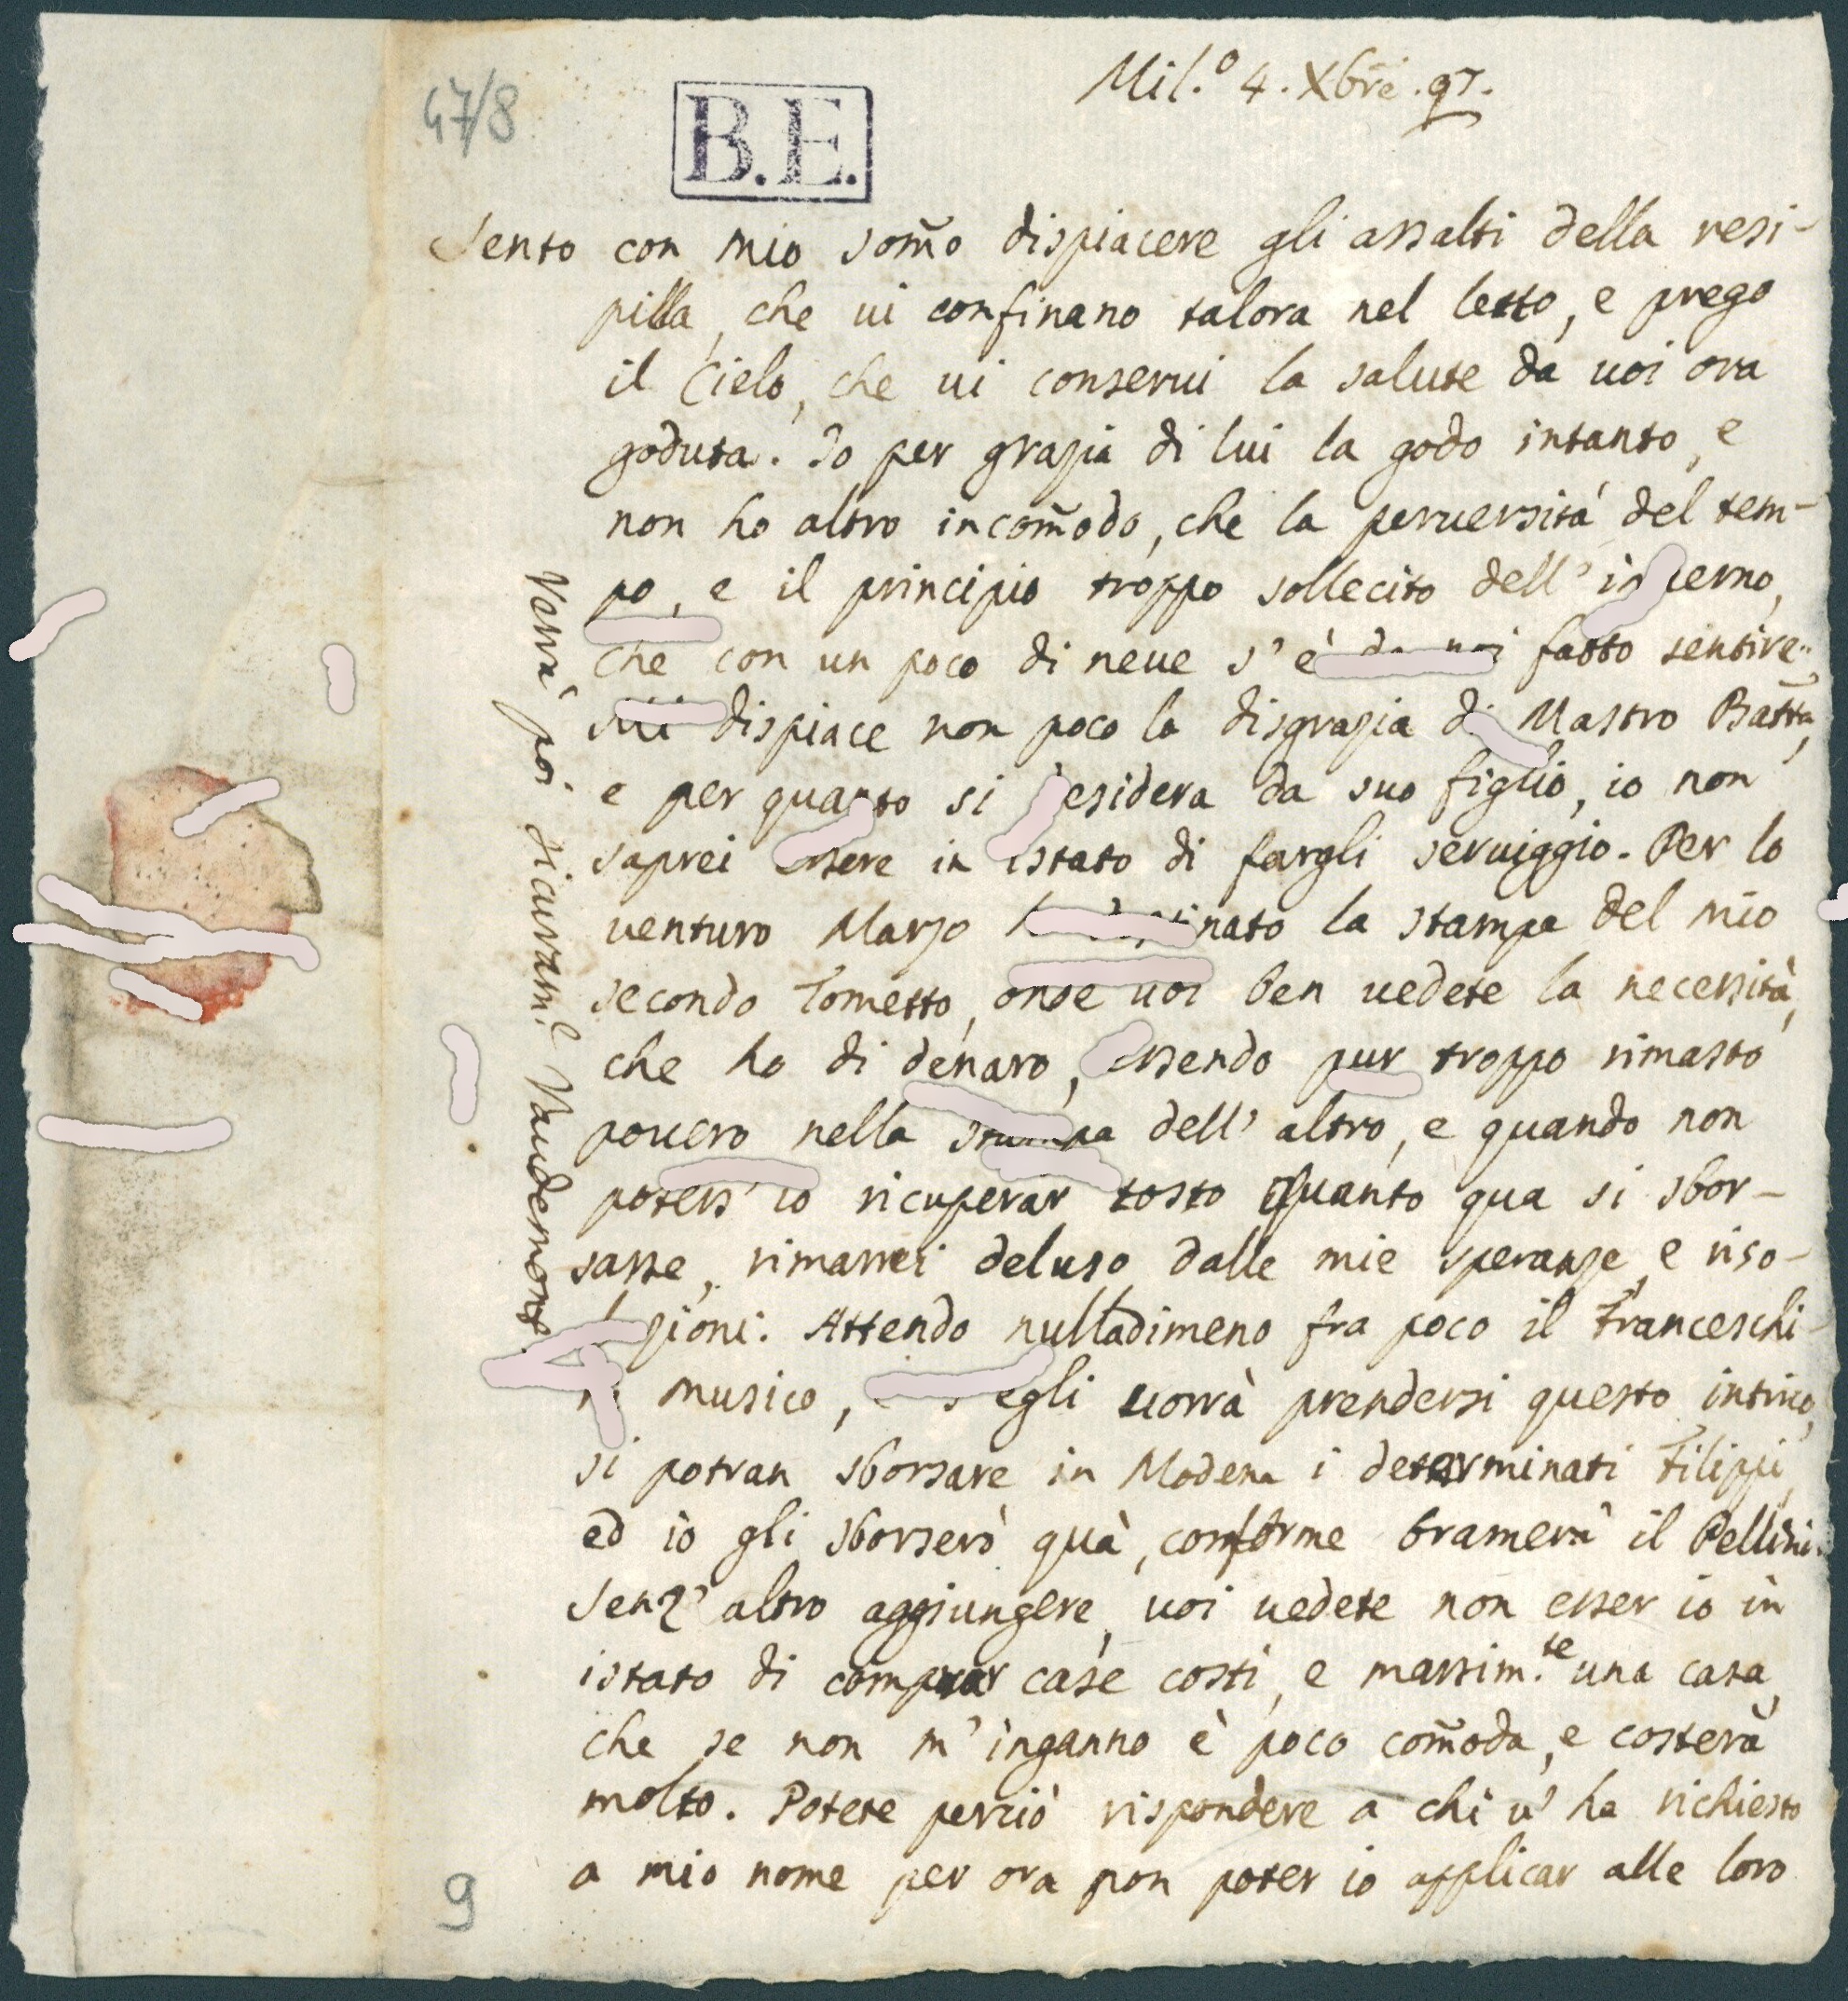 47/8
B.E.
Mil.º 4. Xbre. 97.
Sento con mio som̃o dispiacere gli assalti della resi-
pilla, che ui confinano talora nel letto, e prego
il Cielo, che ui conserui la salute da uoi ora
goduta. Io per grazia di lui la godo intanto, e
non ho altro incom̃odo, che la peruersità del tem-
po, e il principio troppo sollecito dell'
che con un poco di neue s'è fatto sentire.
dispiace non poco la disgrazia di Mastro Batta,
e per quanto si desidera da suo figlio, io non
saprei essere in istato di fargli seruiggio. Per lo
venturo Marzo la stampa del mio
secondo Tometto, onde uoi ben uedete la necessità,
che ho di denaro, essendo pur troppo rimasto
pouero nella stampa dell' altro, e quando non
potess' io ricuperar tosto quanto qua si sbor-
sasse, rimarrei deluso dalle mie speranze, e riso-
zioni. Attendo nulladimeno fra poco il Franceschi-
musico, egli uorrà prendersi questo intrico,
si potran sborsare in Modena i determinati Filippi,
ed io gli sborserò quà, conforme bramerà il Pellini.
Senz' altro aggiungere, uoi uedete non esser io in
istato di comprar case costì, e massim.te una casa,
che se non m'inganno è poco com̃oda, e costerà
molto. Potete perciò rispondere a chi u' ha richiesto
a mio nome per ora non poter io applicar alle loro
Verrà poi sicuram.e Vaudemont
9